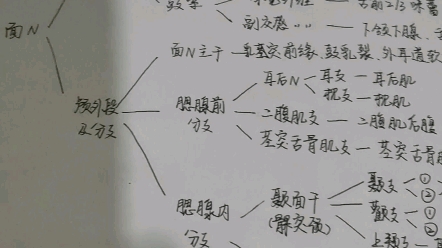 鼓索
舌前2/3味蕾
副交感〃〃 — 下颌下腺、舌
面N
面N主干 — 乳茎突前缘、鼓乳裂、外耳道软
颅外段及分支
腮腺前分支
耳后N
耳支 — 耳后肌
枕支 — 枕肌
二腹肌支 — 二腹肌后腹
茎突舌骨肌支 — 茎突舌骨肌
腮腺内分支
颞面干
颞支 ① ②
颧支 ① ②
上颊支